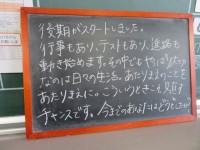 後期がスタートしました。
行事もあり、テストもあり、進路も
動き始めます。その中でもやはりベース
なのは日々の生活。あたりまえのことを
あたりまえに。こういうときこそ見直す
チャンスです。今までのあなたはどうでしたか?